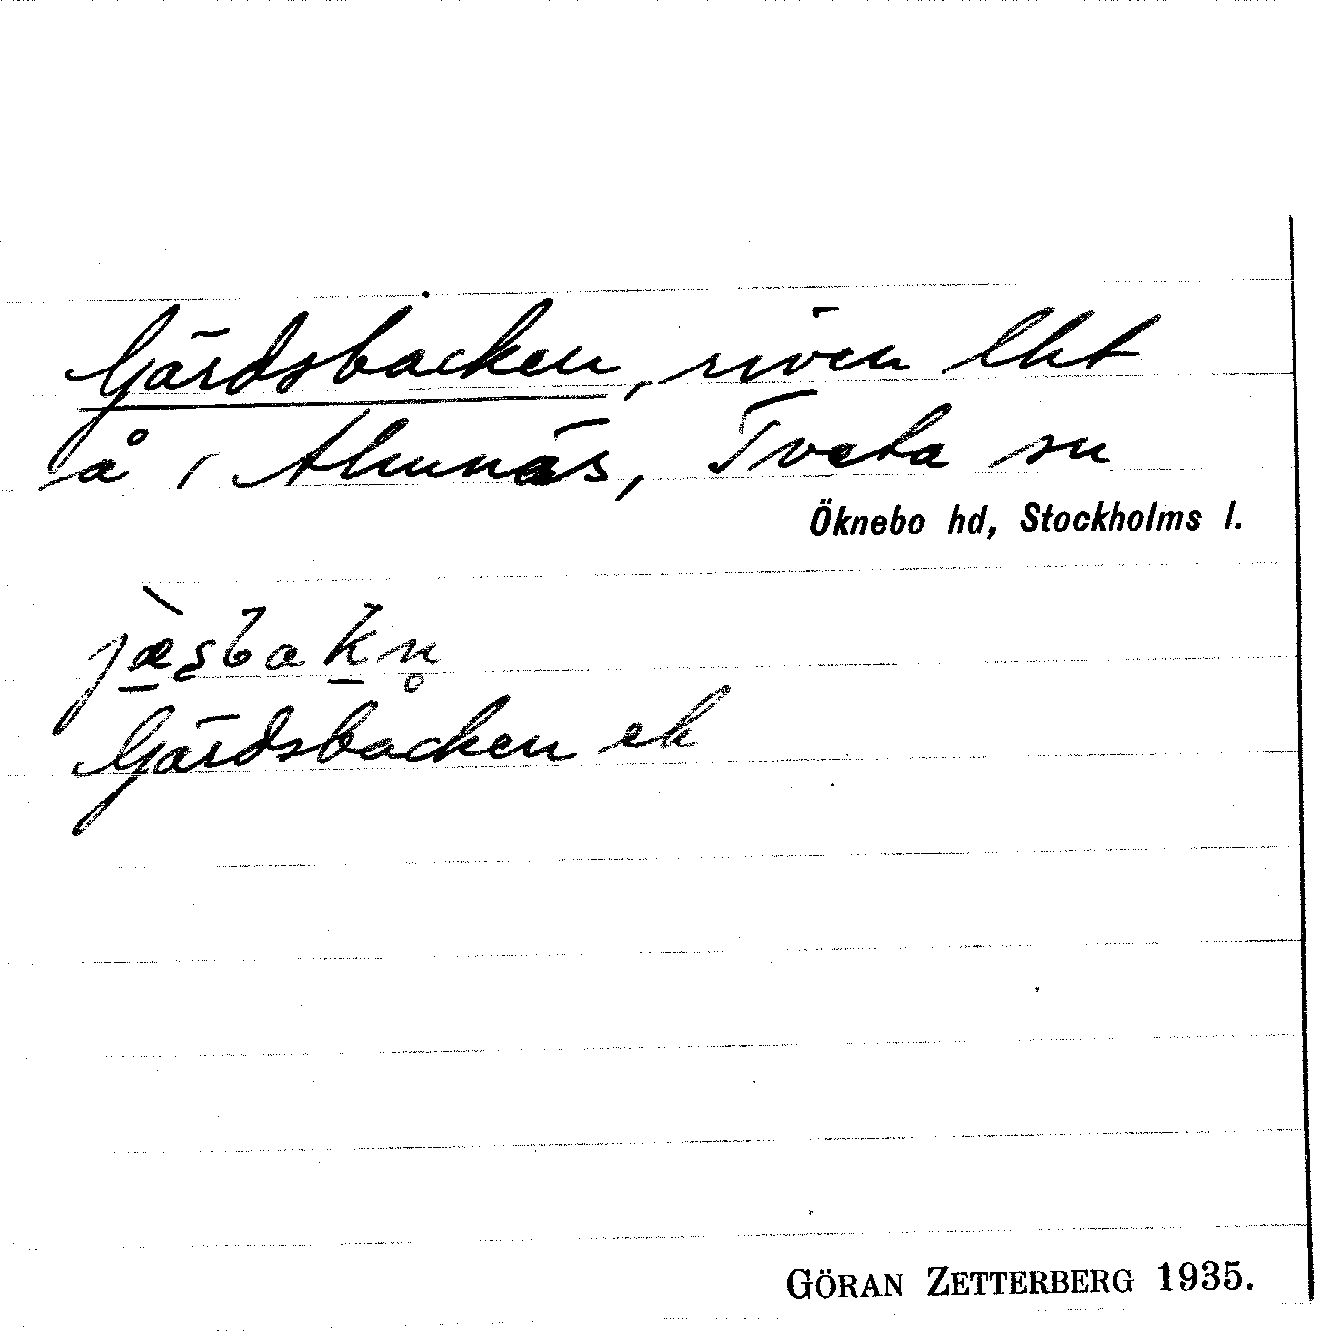 Gärdsbacken, riven lht
å 1 Almnäs, Tveta sn
Öknebo hd, Stockholms l.
jæ̀sbakn̥
Gärdsbacken ek
GÖRAN ZETTERBERG 1935.